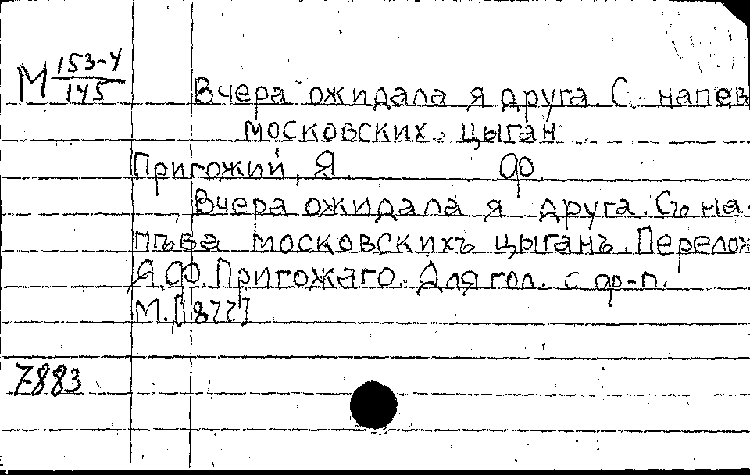 М 153-4/145
Вчера ожидала я друга. С напев
московских цыган
Пригожий, Я. Ф.
Вчера ожидала я друга. Съ на-
пѣва московскихъ цыганъ. Перелож
Я.Ф. Пригожаго. Для гол. с ф-п.
М. [1877]
7883